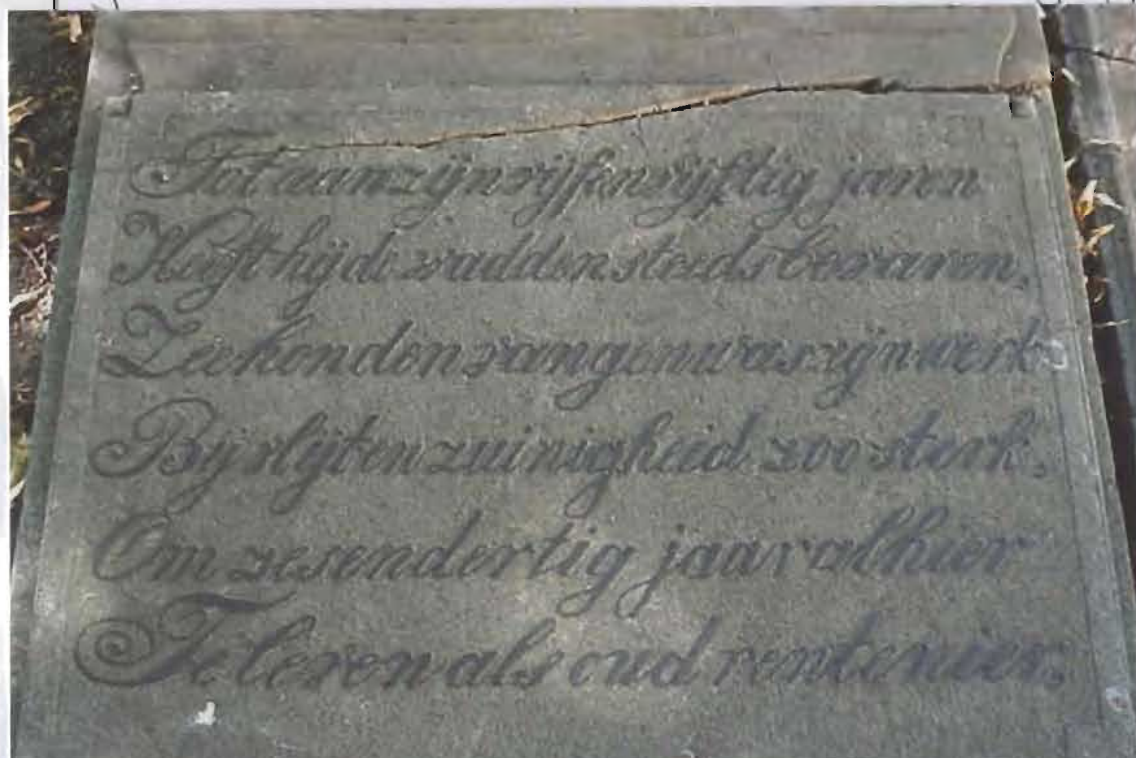 Tot aan zijn vijfenvijftig jaren
Heeft hij de wadden steeds bevaren,
Zeehonden vangen was zijn werk
Bij vlijt en zuinigheid zoo sterk,
Om zesendertig jaar alhier
Te leven als oud rentenier.